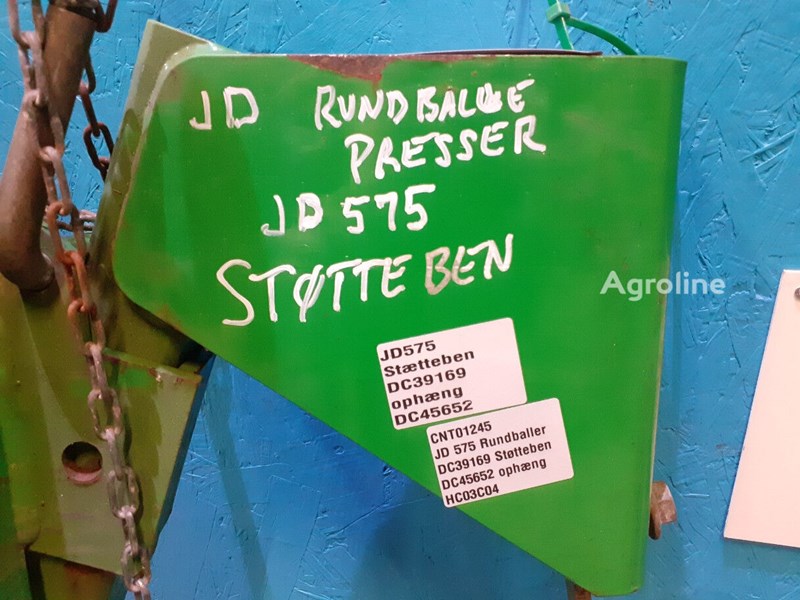 JD RUNDBALLE
PRESSER
JD 575
STØTTEBEN
Agroline
JD575
Stætteben
DC39169
ophæng
DC45652
CNT01245
JD 575 Rundballer
DC39169 Støtteben
DC45652 ophæng
HC03C04